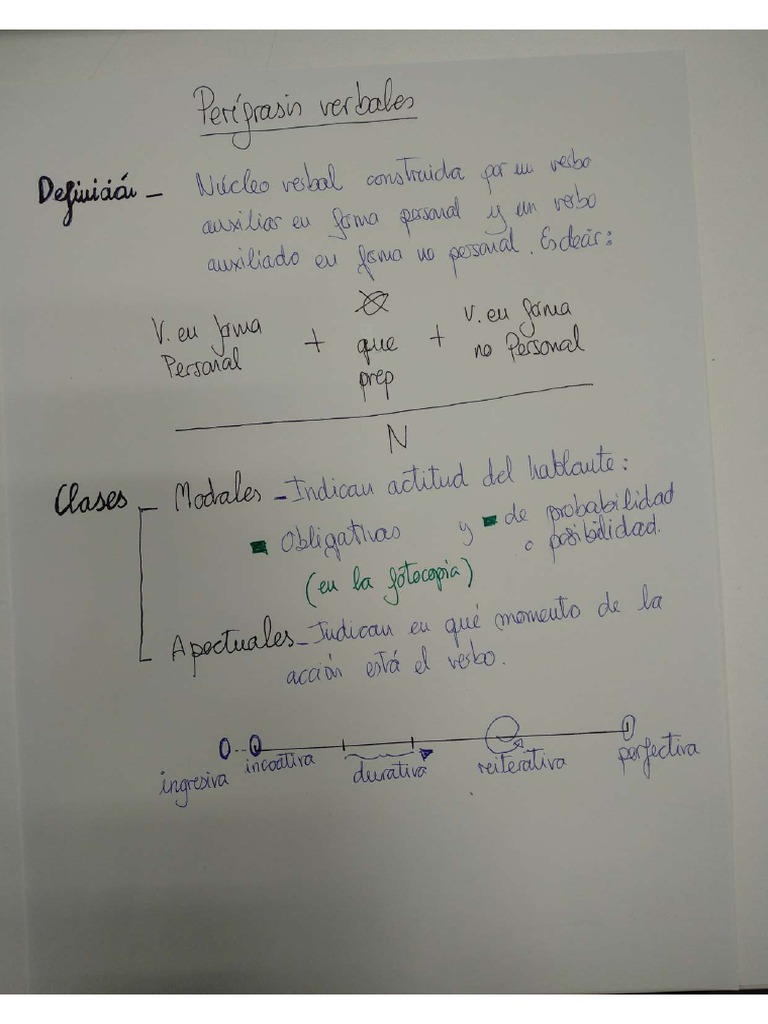 Perífrasis verbales
Definición - Núcleo verbal construida por un verbo
auxiliar en forma personal y un verbo
auxiliado en forma no personal. Es decir:
V. en forma Personal + Ø que prep + V. en forma no Personal
N
Clases - Modales - Indican actitud del hablante:
Obligativas y de probabilidad
o posibilidad.
(en la fotocopia)
Apectuales - Indican en qué momento de la
acción está el verbo.
ingresiva incoativa durativa reiterativa perfectiva